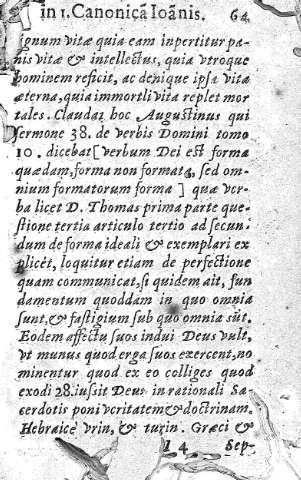 in 1. Canonicã Ioãnis. 64
ignum vitæ quia eam inpertitur pa-
nis vitæ & intellectus, quia vtroque
hominem reficit, ac denique ipsa vita
æterna, quia immortli vita replet mor
tales. Claudat hoc Augustinus qui
sermone 38. de verbis Domini tomo
10. dicebat [verbum Dei est forma
quædam, forma non formata, sed om-
nium formatorum forma] quæ ver-
ba licet D. Thomas prima parte que-
stione tertia articulo tertio ad secun
dum de forma ideali & exemplari ex
plicet, loquitur etiam de perfectione
quam communicat, si quidem ait, fun
damentum quoddam in quo omnia
sunt, & fastigium sub quo omnia sũt.
Eodem affectu suos indui Deus vult,
vt munus quod erga suos exercent, no
minentur quod ex eo colliges quod
exodi 28. iussit Deus in rationali Sa-
cerdotis poni veritatem & doctrinam.
Hebraice vrin, & turin. Græci &
I 4 Sep-